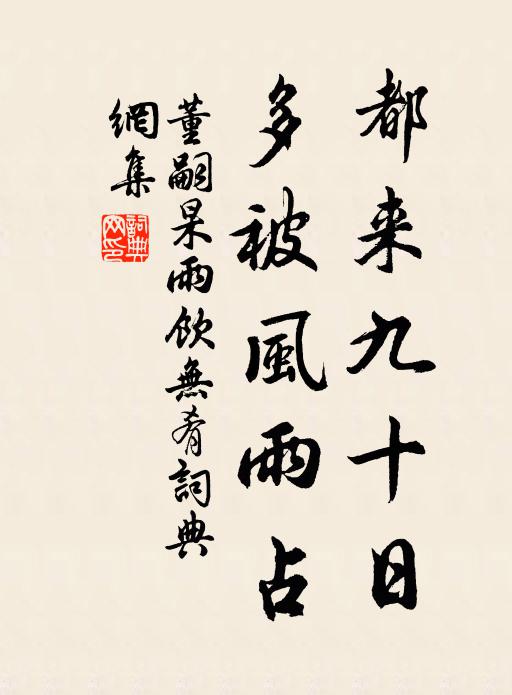 都来九十日
多被風雨占
董嗣杲雨飲無肴詞典
網集
詞典網印